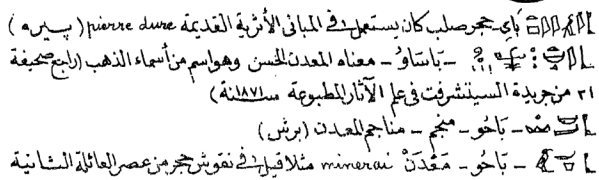 بَاي - حجر صلب كان يستعمل في المبانى الأثرية القديمة pierre dure (بيره)
- بَاسَاوُ - معناه المعدن الحسن وهو اسم من أسماء الذهب (راجع صحيفة
٢١ من جريدة السيتشرفت في علم الآثار المطبوعة سنة ١٨٧١)
- بَاحُو - منجم - مناجم المعدن (برش)
- بَاحُو - مَعْدَنْ minerai مثلا قيل في نقوش حجر من عصر العائلة الثانية